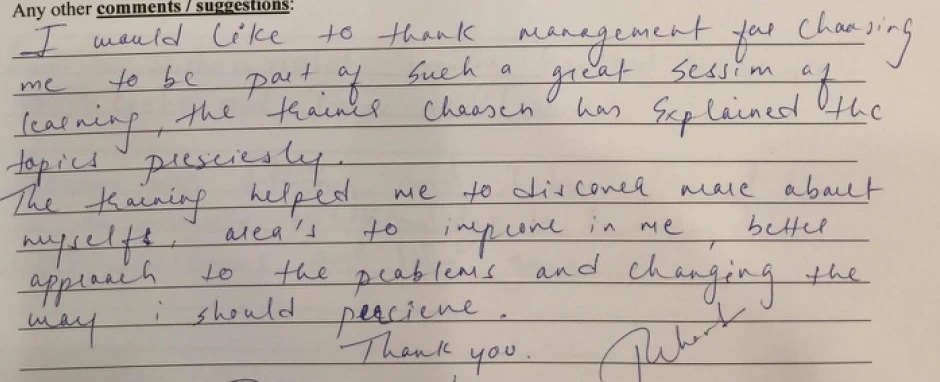 Any other comments / suggestions:
I would like to thank management for choosing
me to be part of such a great session of
learning, the trainer choosen has explained the
topics presciesly.
The training helped me to discover more about
myselfs, area's to improve in me, better
approach to the problems and changing the
way i should percieve.
Thank you.